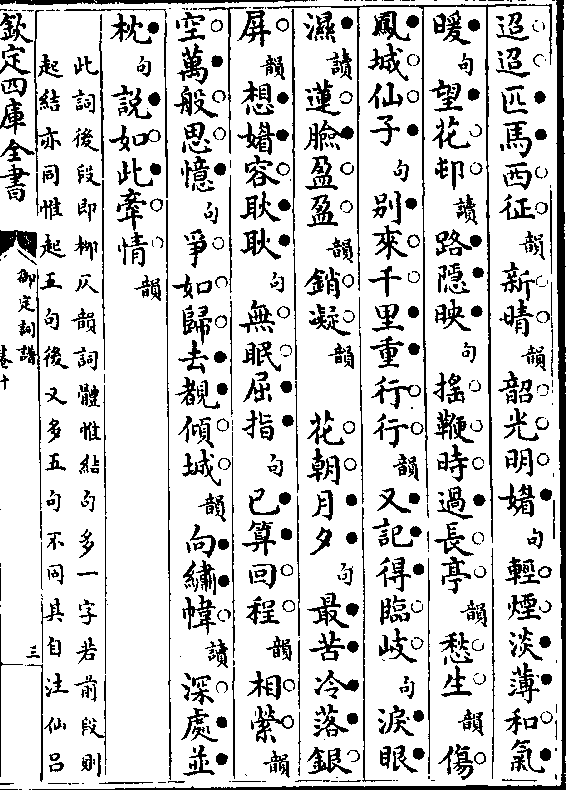 迢迢匹馬西征韻新晴韻韶光明媚句輕煙淡薄和氣
暖句望花邨讀路隱映句搖鞭時過長亭韻愁生韻傷
鳳城仙子句别來千里重行行韻又記得臨岐句淚眼
濕讀蓮臉盈盈韻銷凝韻 花朝月夕句最苦冷落銀
屏韻想媚容耿耿句無眠屈指句已算回程韻相縈韻
空萬般思憶句爭如歸去覩傾城韻向繡幃讀深處並
枕句說如此牽情韻
此詞後段即柳仄韻詞體惟結句多一字若前段則
起結亦同惟起五句後又多五句不同其自注仙呂
欽定四庫全書
御定詞譜
卷十
三